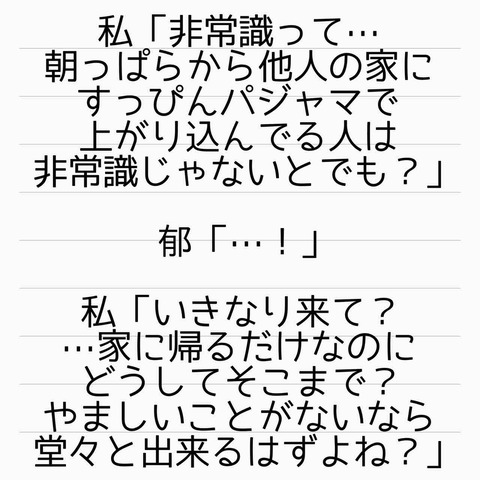 私「非常識って…
朝っぱらから他人の家に
すっぴんパジャマで
上がり込んでる人は
非常識じゃないとでも？」
郁「…！」
私「いきなり来て？
…家に帰るだけなのに
どうしてそこまで？
やましいことがないなら
堂々と出来るはずよね？」